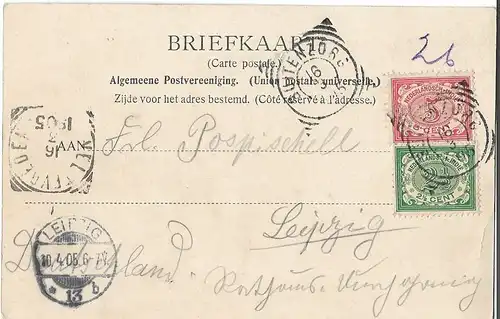 BRIEFKAART
(Carte postale.)
Algemeene Postvereeniging. (Union postale universelle.)
Zijde voor het adres bestemd. (Côté réservé à l'adresse.)
26
BUITENZORG
16
AAN
WELTEVREDEN
16
1905
Frl. Pospischell
Leipzig
Deutschland
LEIPZIG
10.4.05.6-7V.
* 13 b
5 CENT
2½ CENT